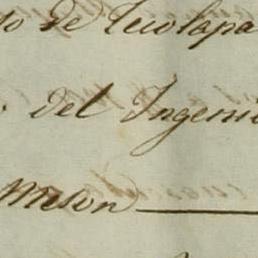 to de Tecolapa
del Ingenio
Meson